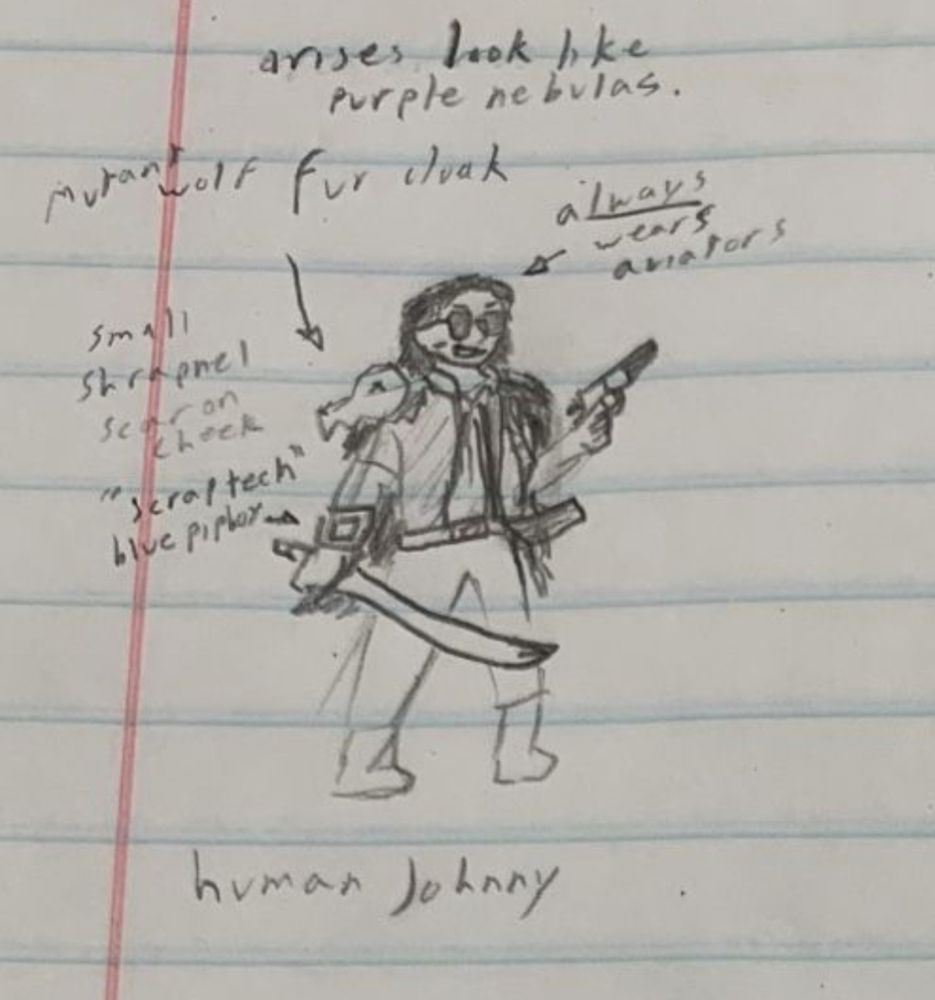 arises look like
purple nebulas.
mutant wolf fur cloak
always
wears
aviators
small
shrapnel
scar on
cheek
"scraptech"
blue pipboy
human Johnny